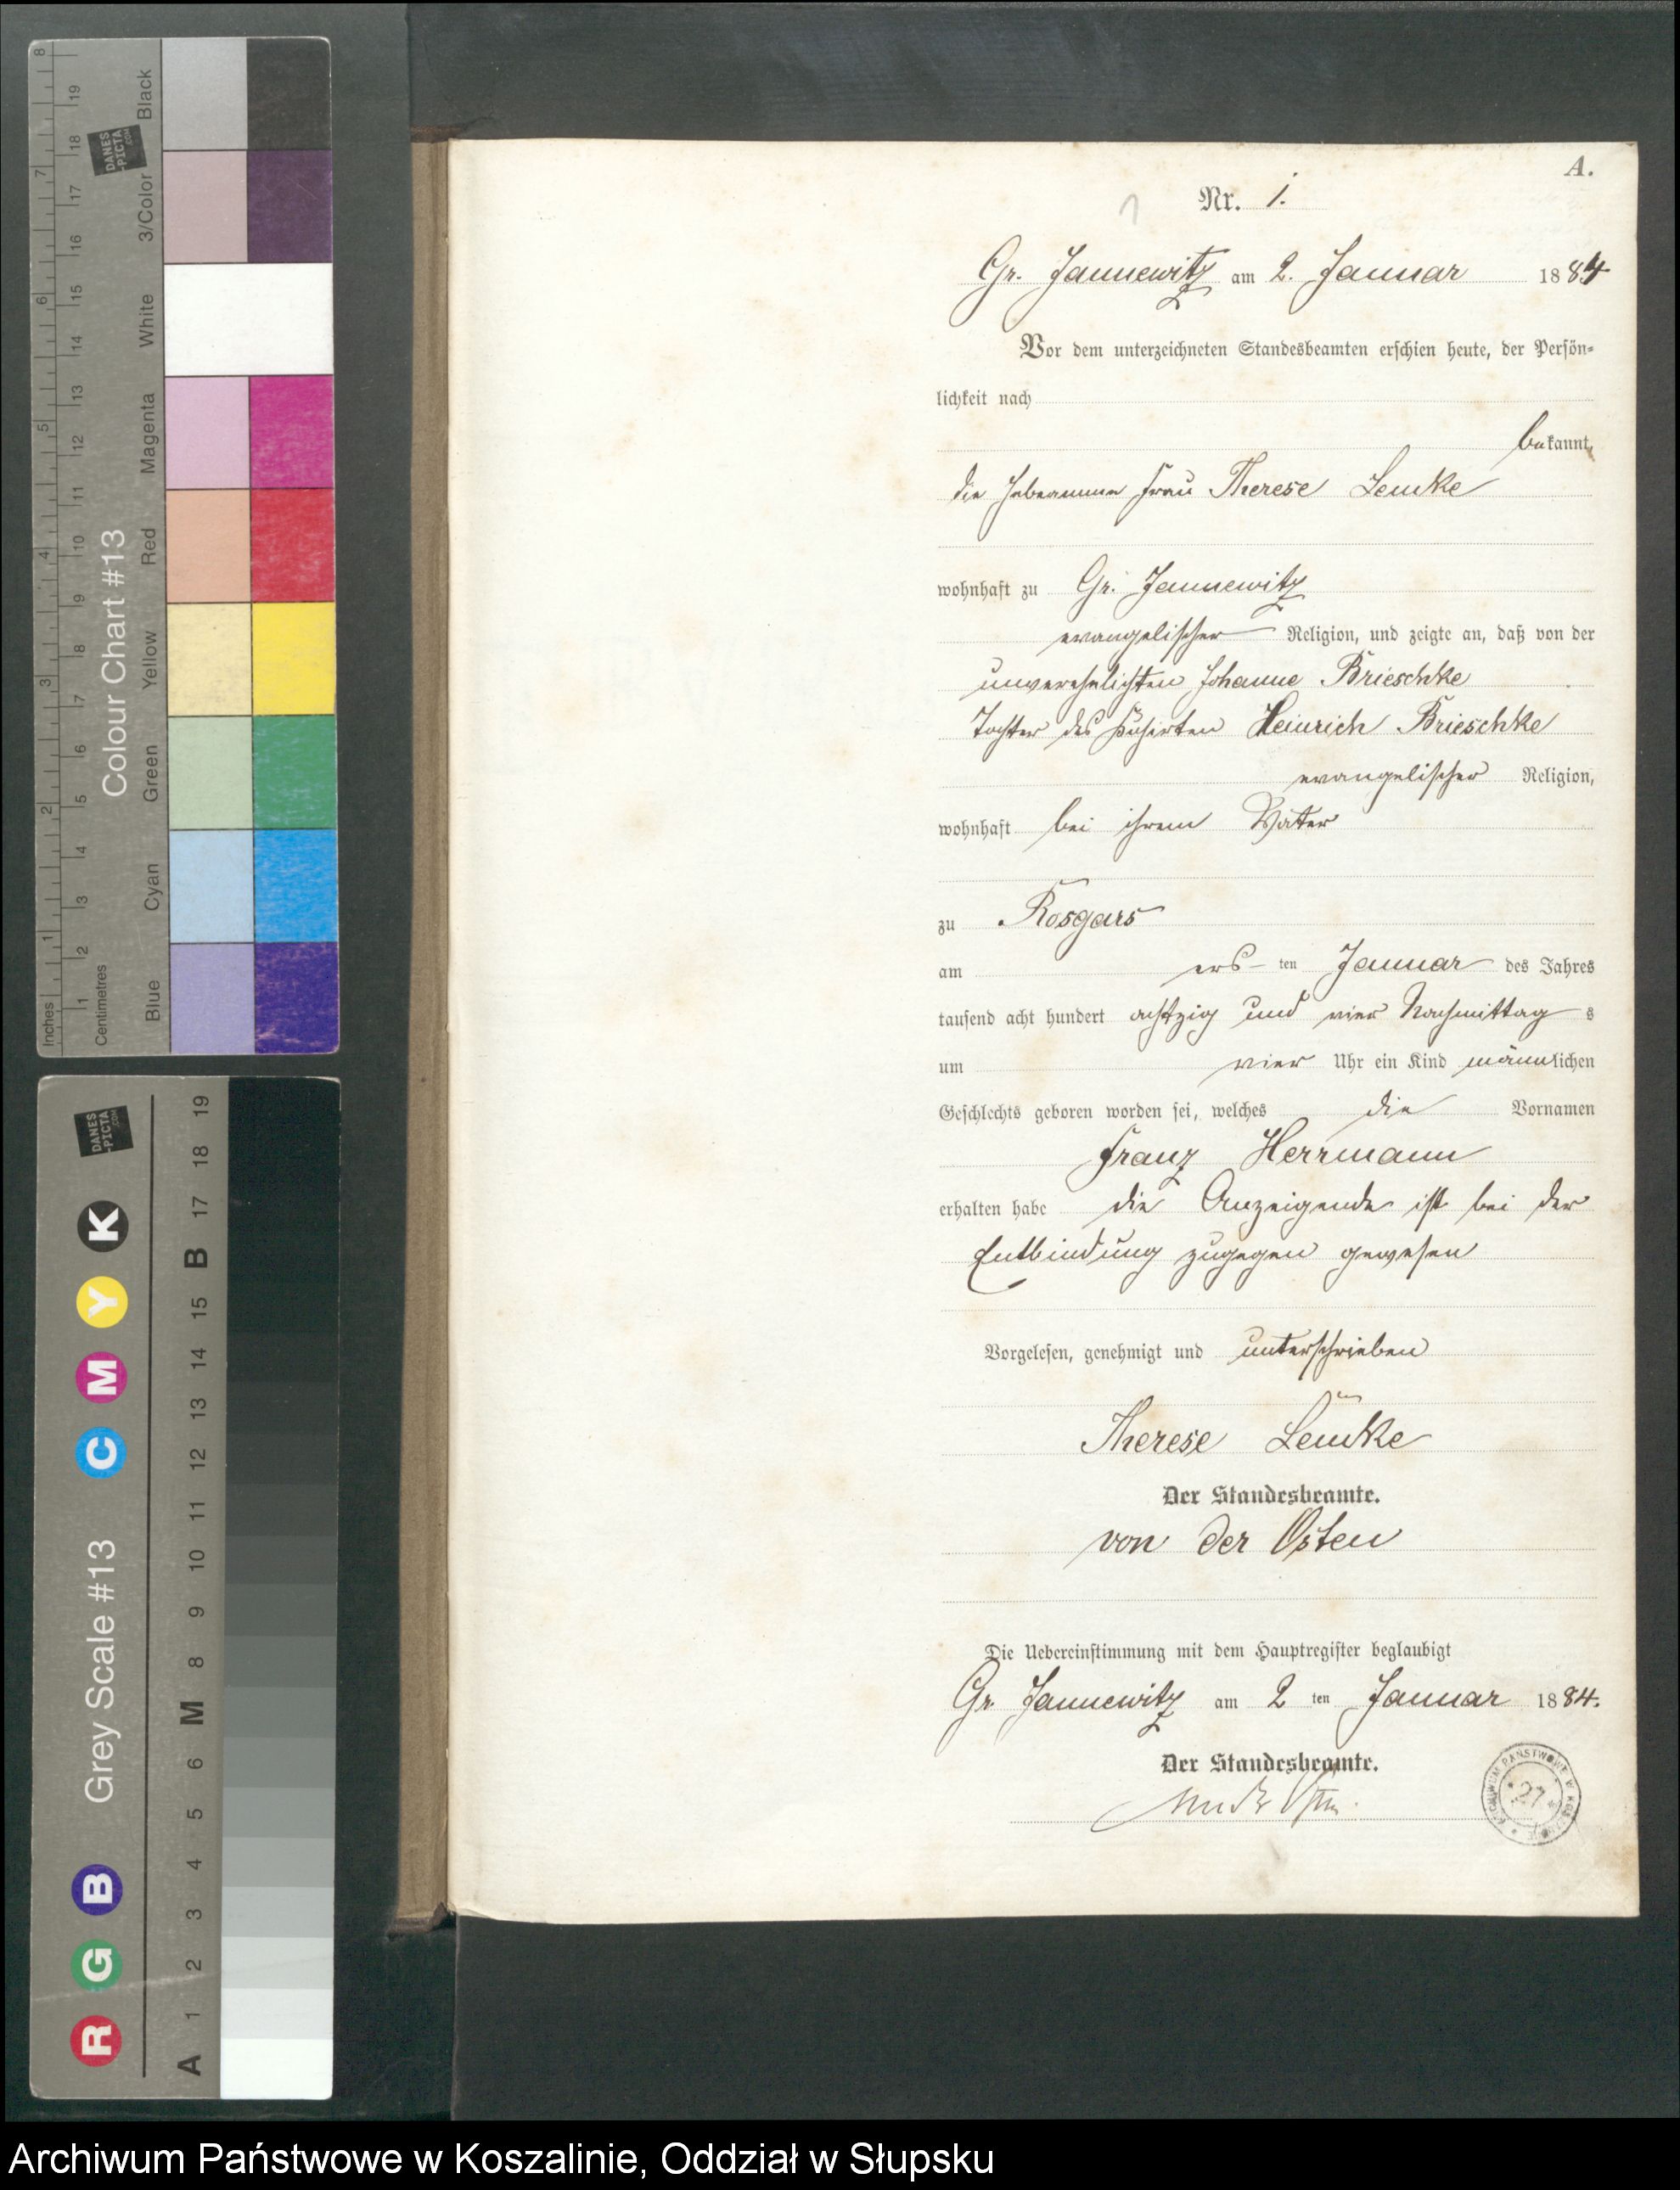 A.
1
Nr. 1.
Gr. Jannewitz am 2. Januar 1884
Vor dem unterzeichneten Standesbeamten erschien heute, der Persön-
lichkeit nach
bekannt,
die Hebeamme Frau Therese Lemke
wohnhaft zu Gr. Jannewitz
evangelischer Religion, und zeigte an, daß von der
unverehelichten Johanne Brieschke
Tochter des Heinrich Brieschke
evangelischer Religion,
wohnhaft bei ihrem Vater
zu Rosgars
am ers-ten Januar des Jahres
tausend acht hundert achtzig und vier Nachmittags
um vier Uhr ein Kind männlichen
Geschlechts geboren worden sei, welches die Vornamen
Franz Herrmann
erhalten habe die Anzeigende ist bei der
Entbindung zugegen gewesen
Vorgelesen, genehmigt und unterschrieben
Therese Lemke
Der Standesbeamte.
von der Osten
Die Uebereinstimmung mit dem Hauptregister beglaubigt
Gr. Jannewitz am 2 ten Januar 1884.
Der Standesbeamte.
von der Osten.
ARCHIWUM PAŃSTWOWE W
27
Colour Chart #13
Blue Cyan Green Yellow Red Magenta White 3/Color Black
Inches 1 2 3 4 5 6 7 8
Centimetres 1 2 3 4 5 6 7 8 9 10 11 12 13 14 15 16 17 18 19
DANES
-PICTA
.COM
Grey Scale #13
R G B C M Y K
A 1 2 3 4 5 6 M 8 9 10 11 12 13 14 15 B 17 18 19
DANES
-PICTA
.COM
Archiwum Państwowe w Koszalinie, Oddział w Słupsku